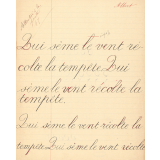 Albert
Qui sème le vent ré-
colte la tempête. Qui
sème le vent récolte la
tempête.
Qui sème le vent récolte la
tempête. Qui sème le vent récolte